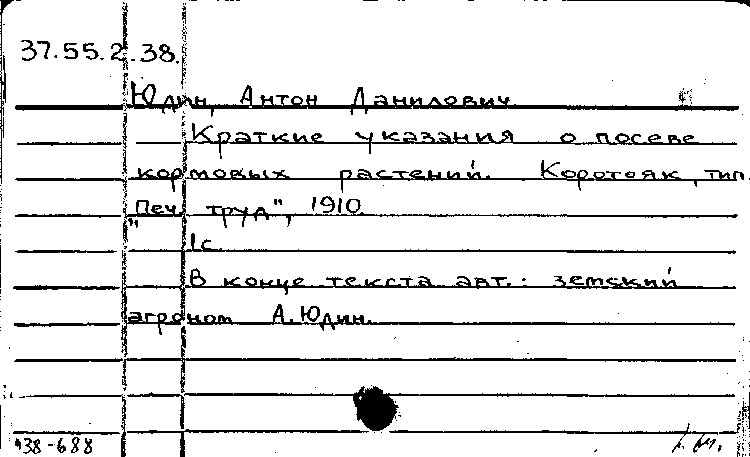 37.55.2.38.
Юдин, Антон Данилович.
Краткие указания о посеве
кормовых растений. Коротояк, тип.
"Печ. труд", 1910.
1с.
В конце текста авт.: земский
агроном А.Юдин.
938-688